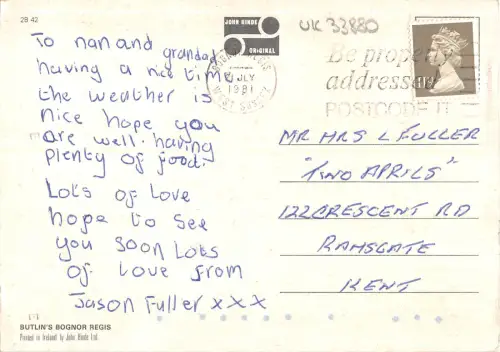 2B 42
JOHN HINDE
ORIGINAL
UK 33880
To nan and grandad
having a nice time
the weather is
nice hope you
are well. having
plenty of food.
Lots of love
hope to see
you soon Lots
of Love from
Jason Fuller x x x
BOGNOR REGIS
JLY
1981
WEST SUSSEX
Be properly
addressed
POSTCODE IT
MR MRS L FULLER
"TWO APRILS"
122 CRESCENT RD
RAMSGATE
KENT
BUTLIN'S BOGNOR REGIS
Printed in Ireland by John Hinde Ltd.